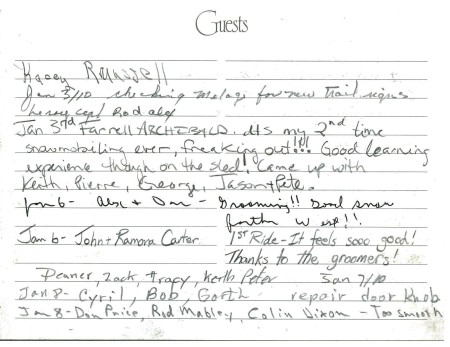 Guests
Kacey Russell
Jan 3/10 checking for new Trail signs
Rod alex
Jan 3rd Farrell ARCHIBALD. Its my 2nd time
snowmobiling ever, freaking out!!! Good learning
experience though on the sled! Came up with
Keith, Pierre, George, Jason + Pete.
Jan 6 - Alex + Don - Grooming!! Good snow
further west!!
Jan 6 - John + Ramona Carter 1ST Ride - It feels sooo good!
Thanks to the groomers!
Zack, Tracy, Keith Peter Jan 7/10
Jan 8 - Cyril, Bob, Garth repair door knob
Jan 8 - Don Price, Rod Mabley, Colin Dixon - Too smooth